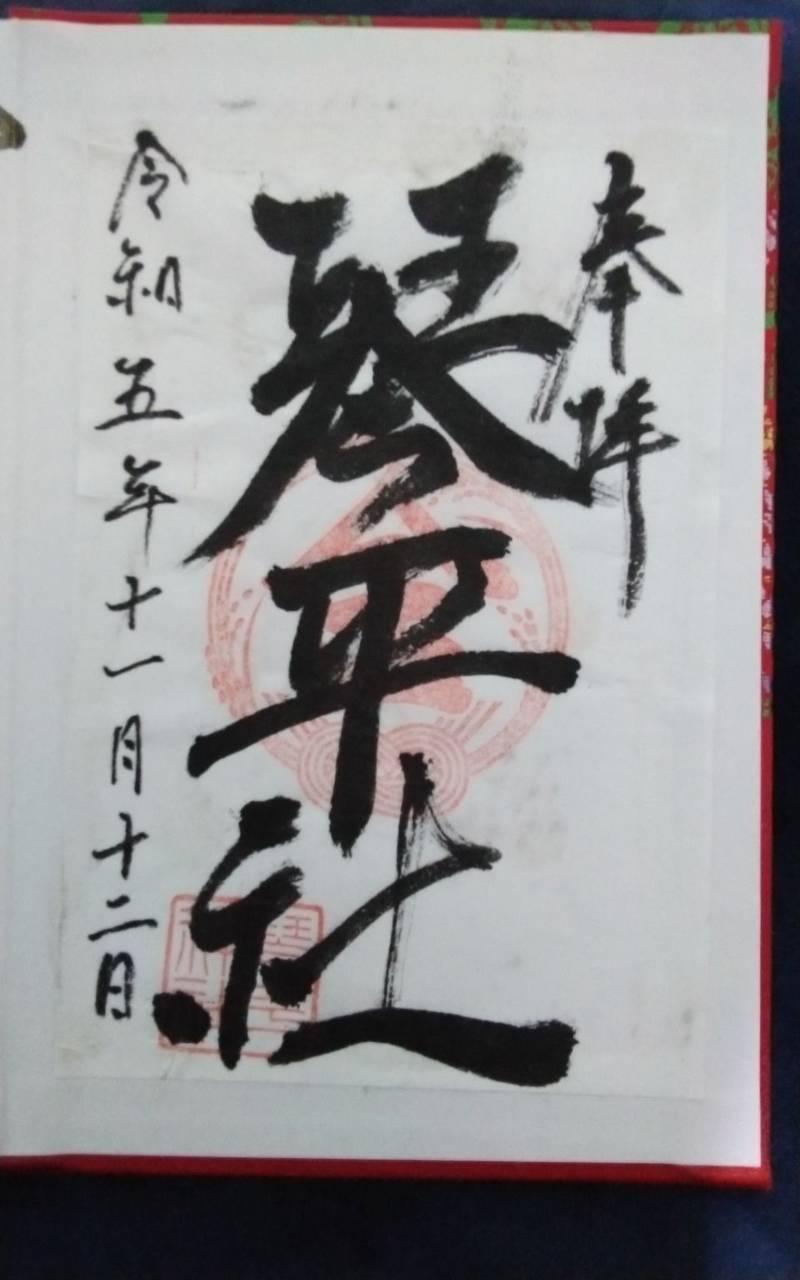 奉拝
琴平社
令和五年十一月十二日